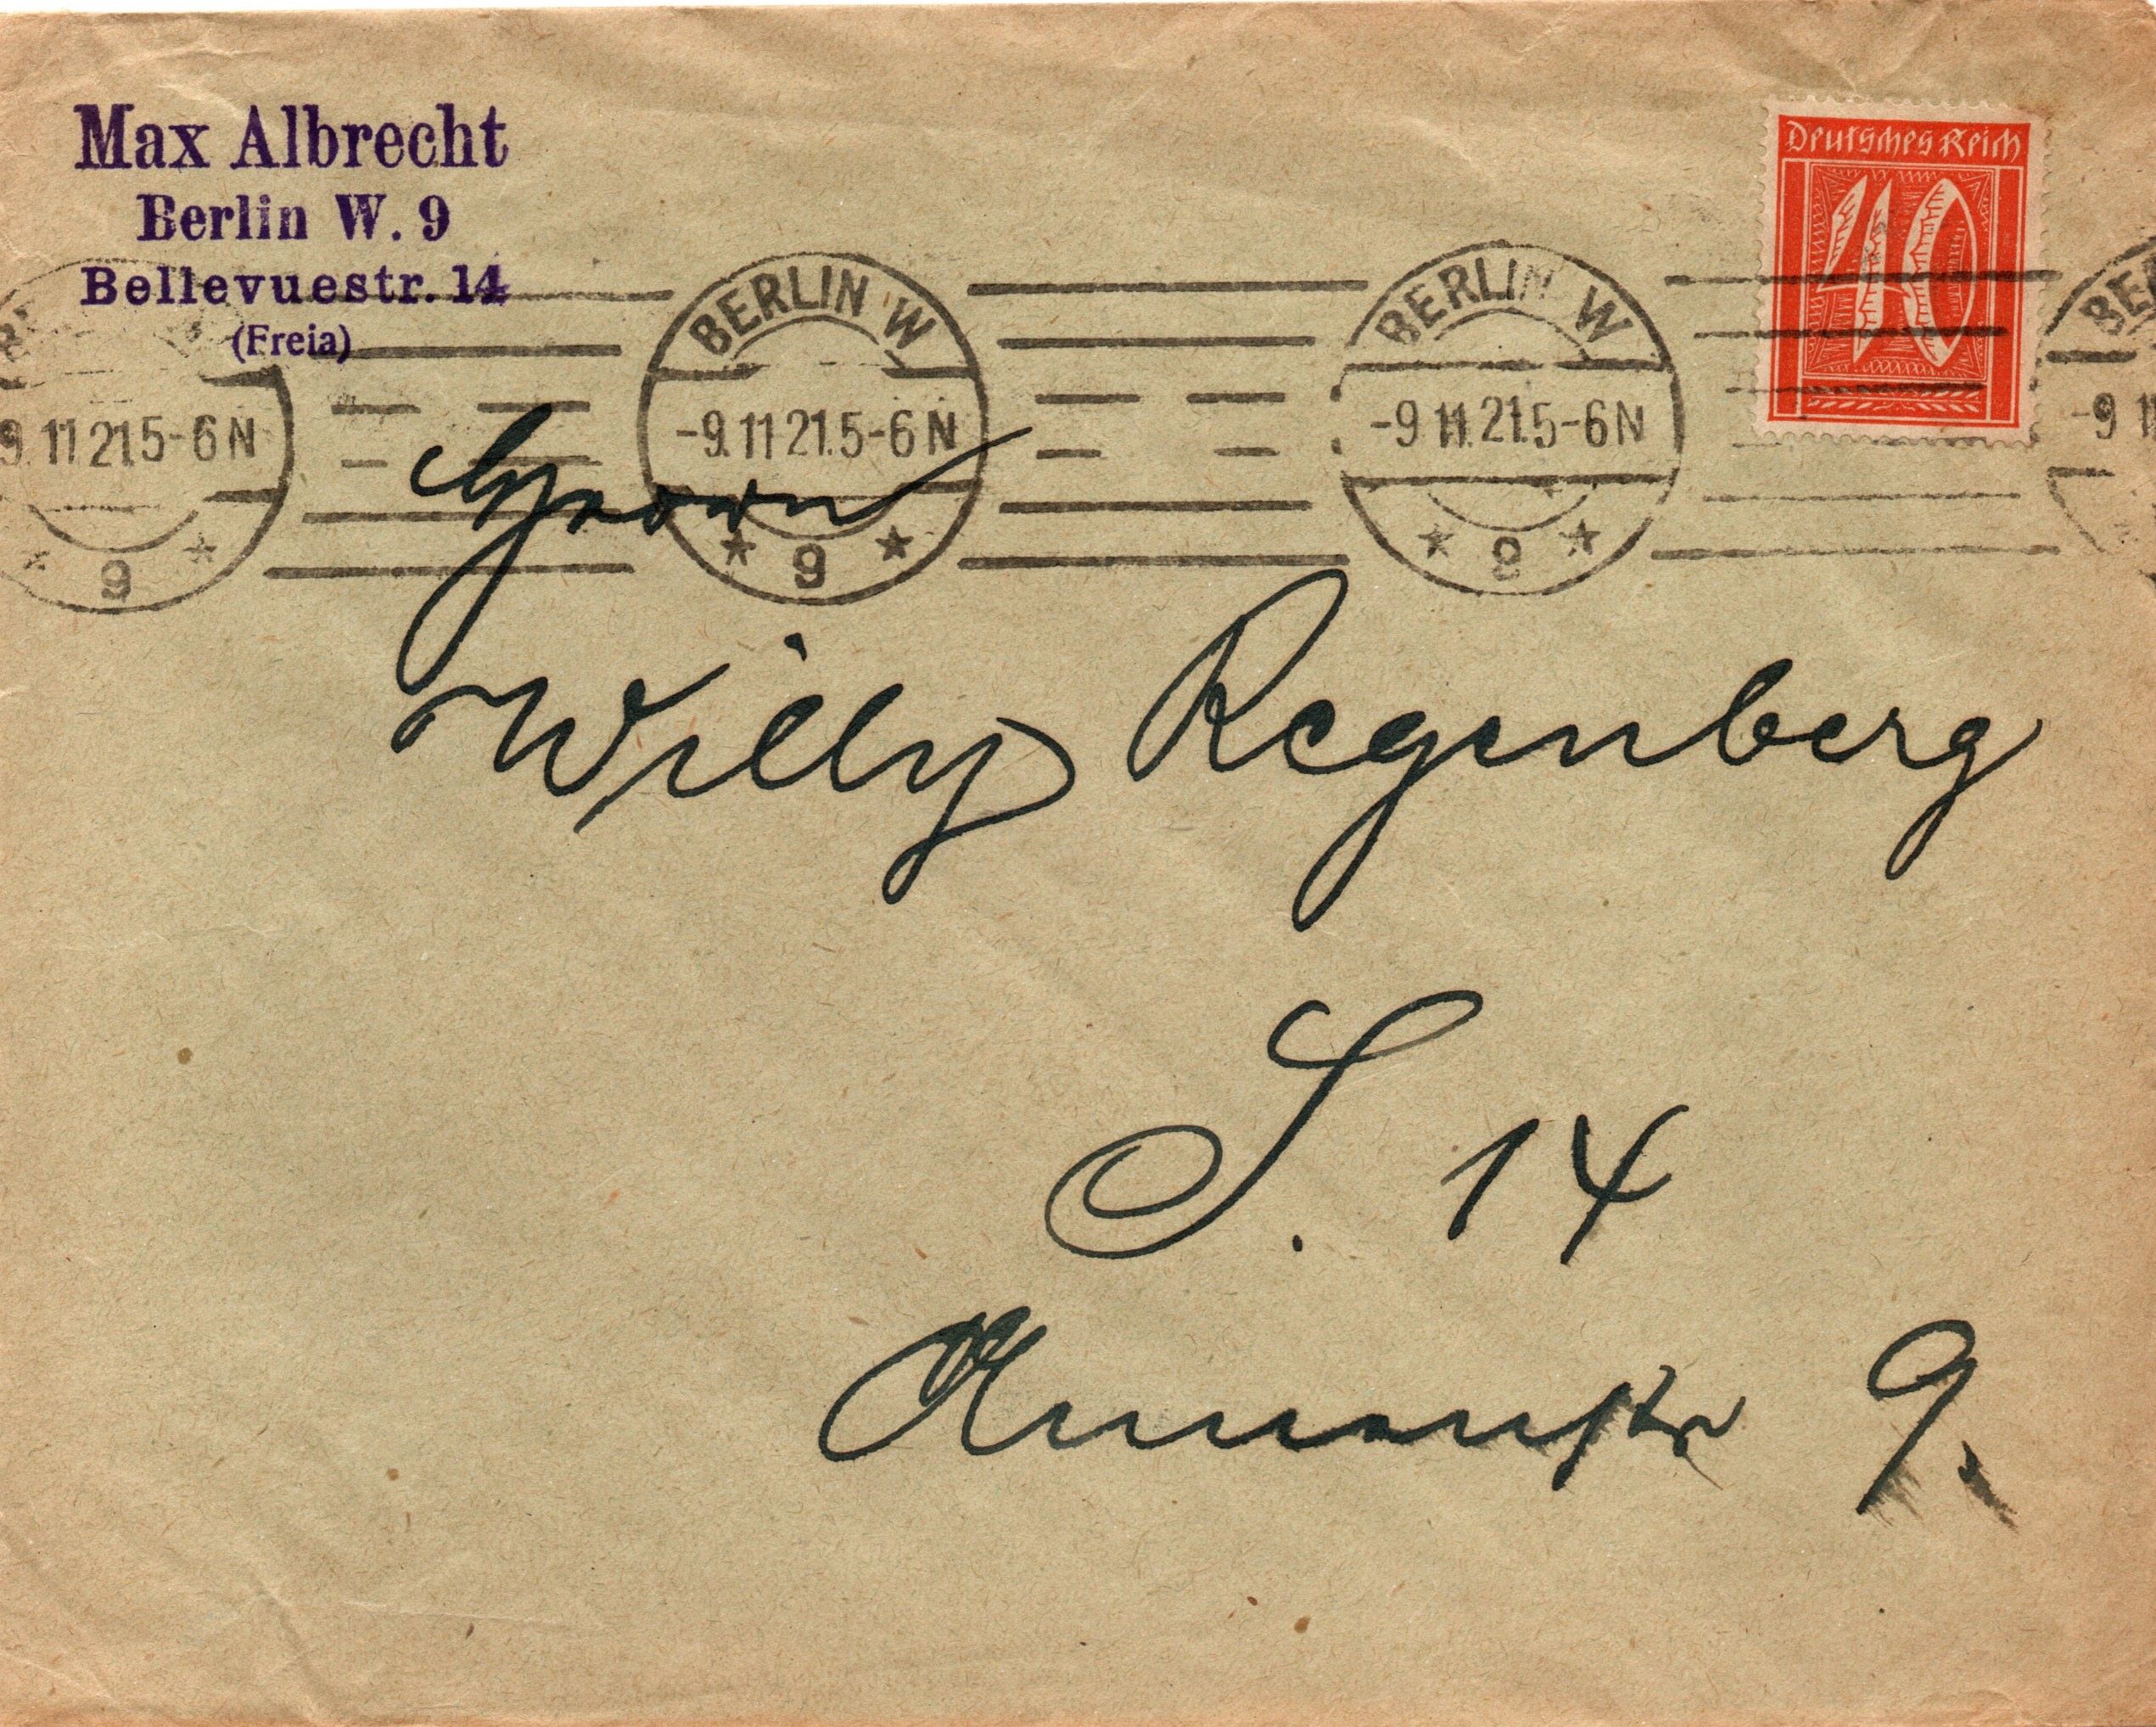 Max Albrecht
Berlin W. 9
Bellevuestr. 14
(Freia)
Deutsches Reich
40
9.11 21.5-6 N
9
BERLIN W
-9.11 21.5-6 N
* 9 *
BERLIN W
-9.11.21.5-6 N
* 9 *
BE
-9 11
Herrn
Willy Regenberg
S. 14
Annenstr 9.